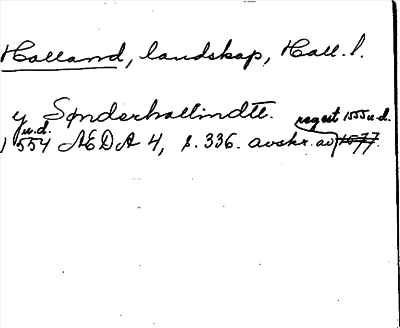 Halland, landskap, Hall. l.
y Sønderhallindtt. regest 1555 u.d.
u.d.
1554 ÆDA 4, s. 336. avskr. av 1577.